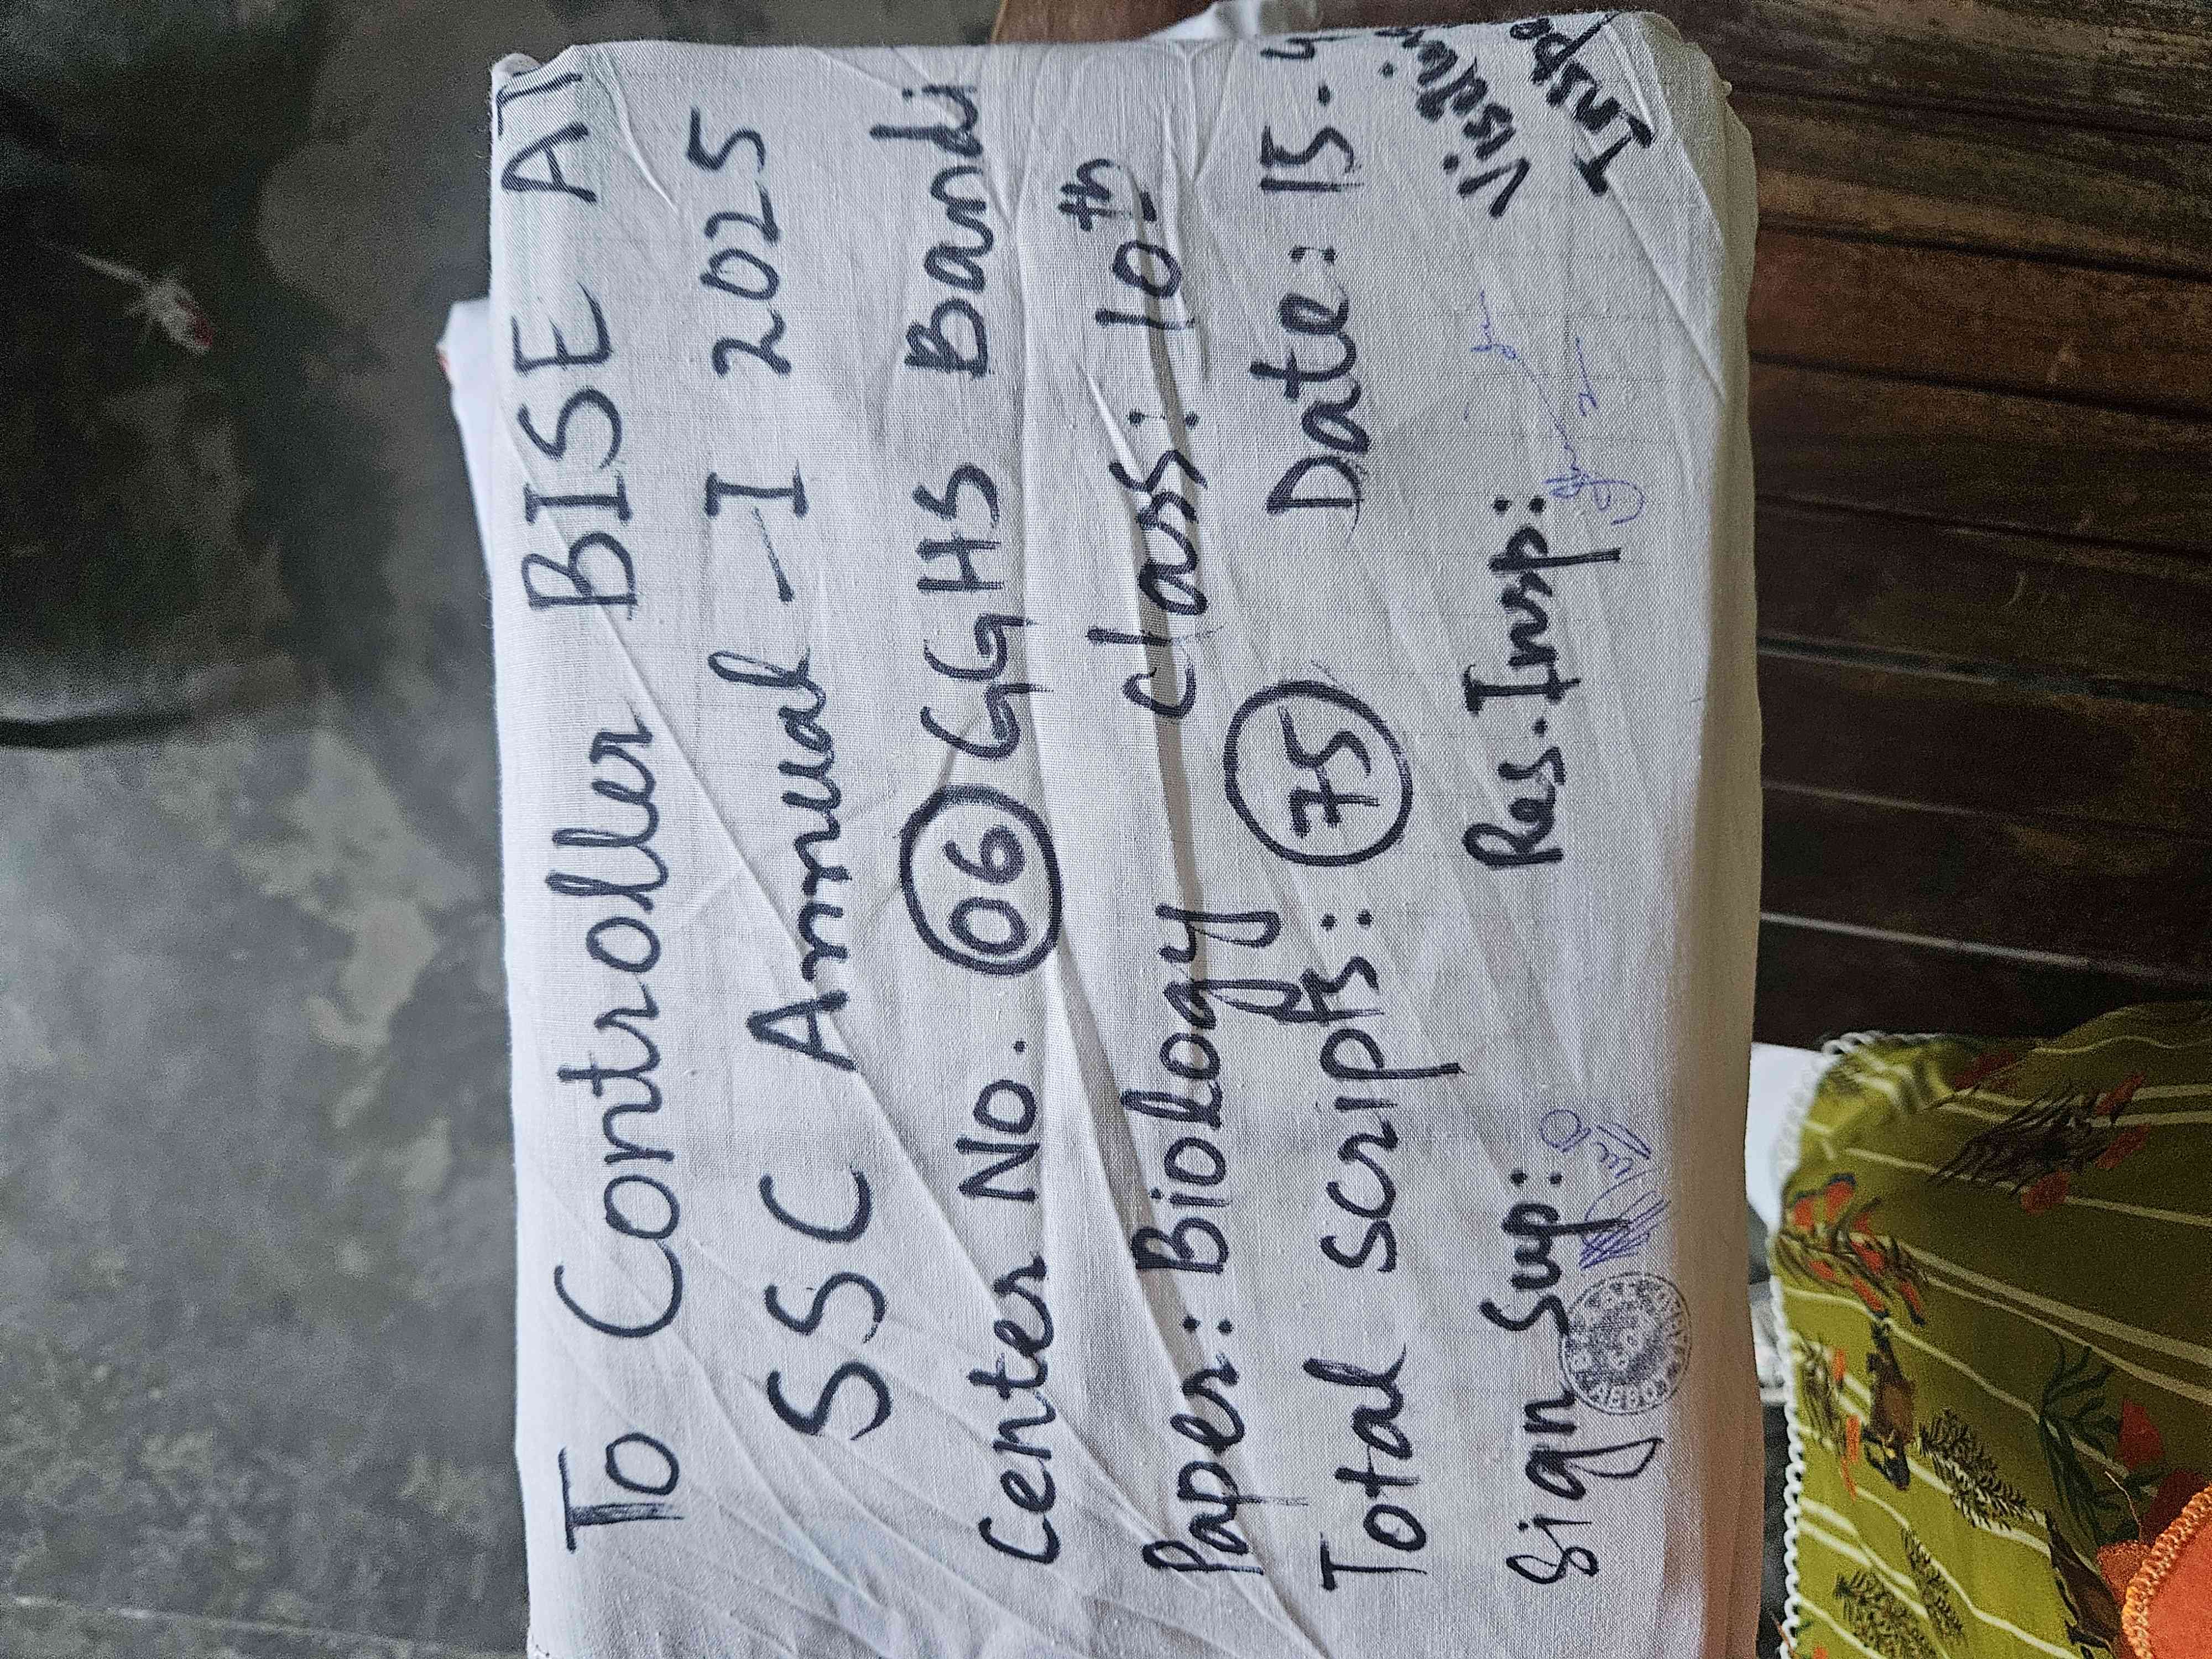 To Controller BISE
SSC Annual - I 2025
Center No. 06 GGHS Bandi
Paper: Biology Class: 10th
Total Scripts: 75 Date: 15-
Sign Sup: Res. Insp: